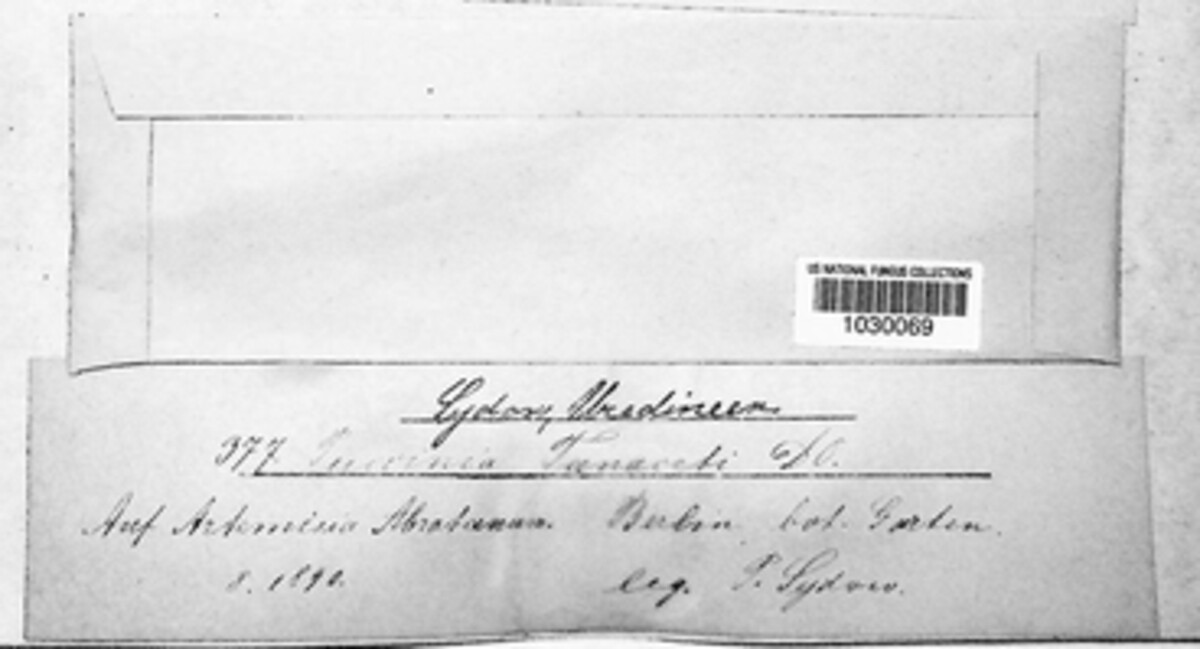 US NATIONAL FUNGUS COLLECTIONS
1030069
Sydow, Uredineen.
377 Puccinia Tanaceti DC.
Auf Artemisia Abrotanum. Berlin, bot. Garten.
8. 1890. leg. P. Sydow.